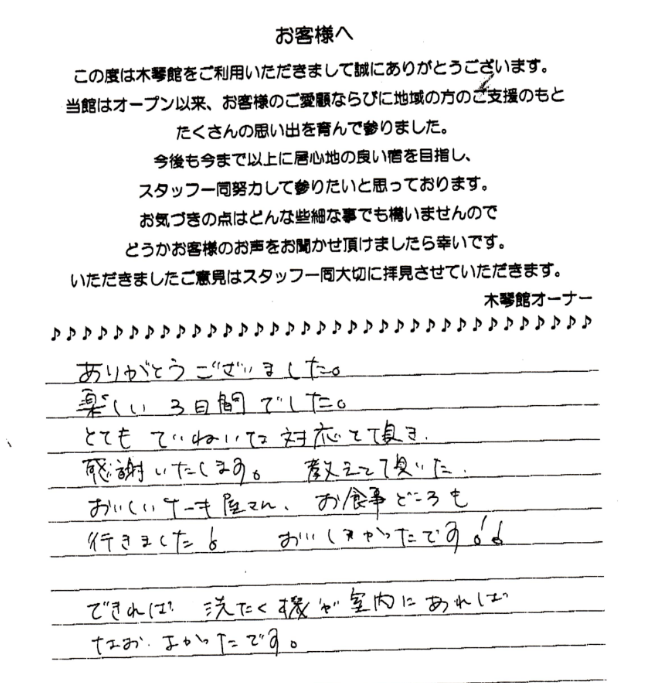 お客様へ
この度は木琴館をご利用いただきまして誠にありがとうございます。
当館はオープン以来、お客様のご愛顧ならびに地域の方のご支援のもと
たくさんの思い出を育んで参りました。
今後も今まで以上に居心地の良い宿を目指し、
スタッフ一同努力して参りたいと思っております。
お気づきの点はどんな些細な事でも構いませんので
どうかお客様のお声をお聞かせ頂けましたら幸いです。
いただきましたご意見はスタッフ一同大切に拝見させていただきます。
木琴館オーナー
♪♪♪♪♪♪♪♪♪♪♪♪♪♪♪♪♪♪♪♪♪♪♪♪♪♪♪♪♪♪♪♪♪♪♪
ありがとうございました。
楽しい3日間でした。
とても ていねいな対応を頂き、
感謝いたします。 教えて頂いた、
おいしいケーキ屋さん、お食事どころも
行きました! おいしかったです!!
できれば 洗たく機が室内にあれば
なお、よかったです。